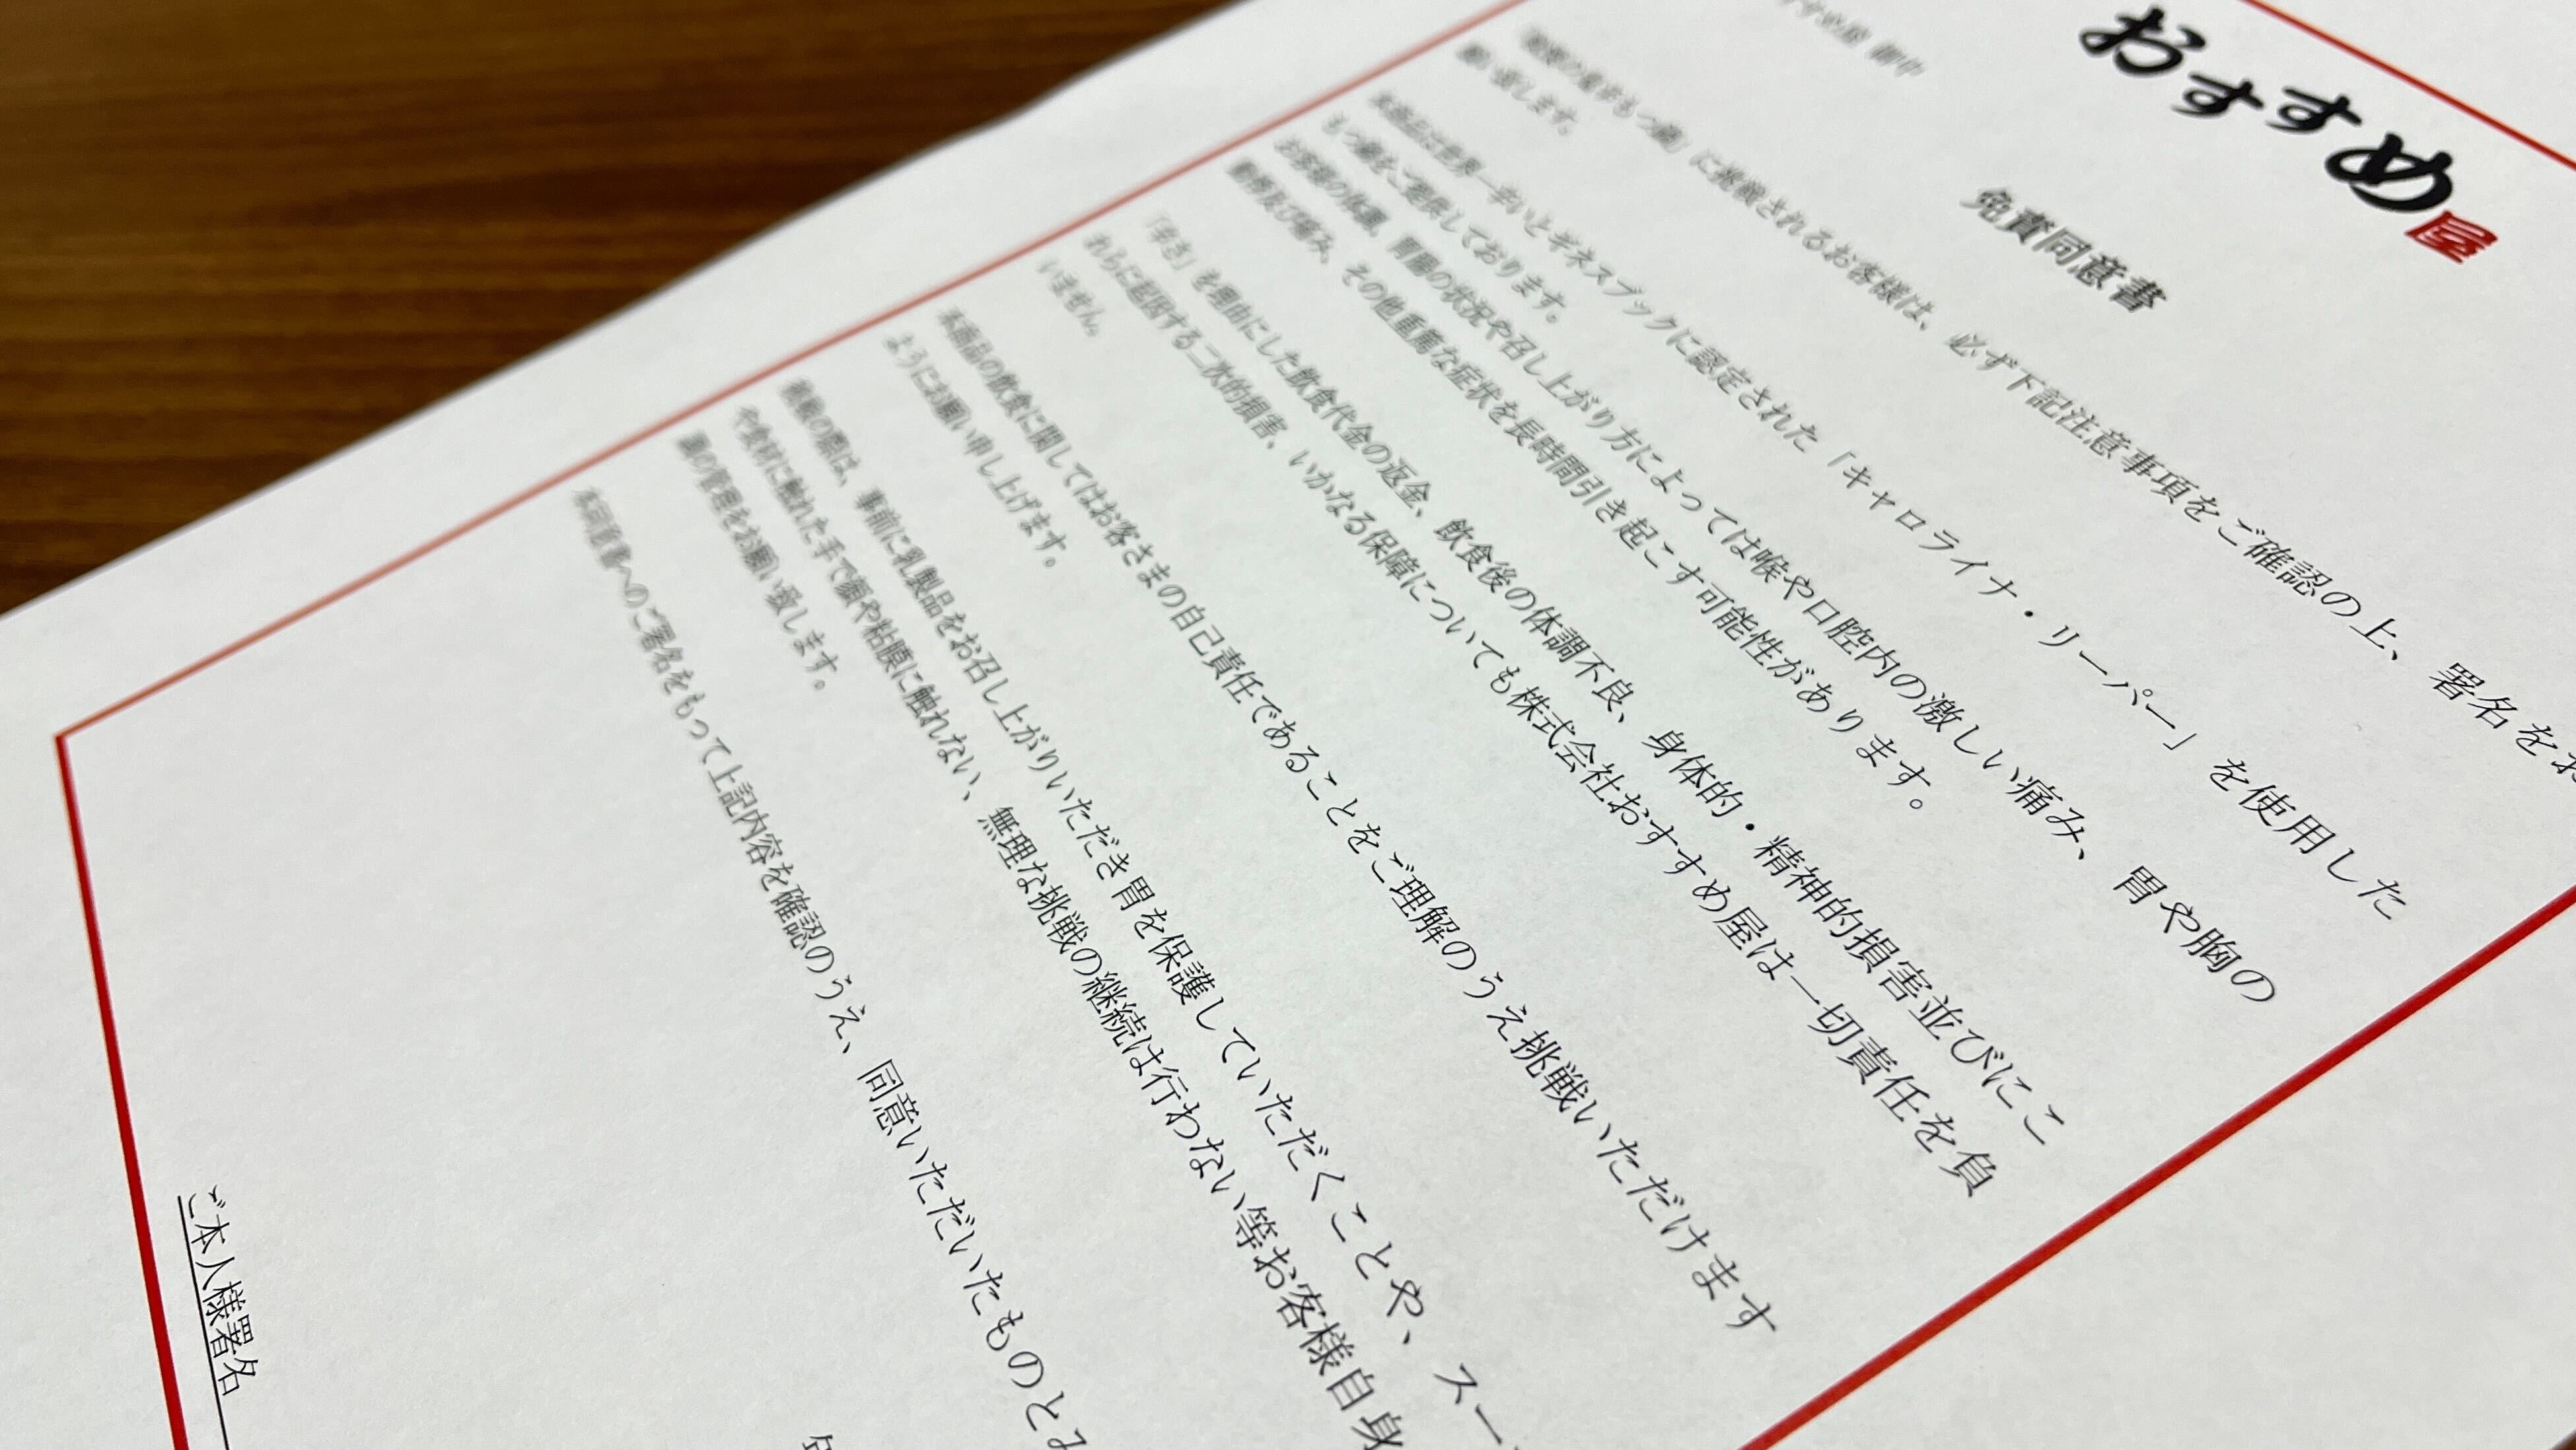 おすすめ屋
免責同意書
に挑戦されるお客様は、必ず下記注意事項をご確認の上、署名をお
願い致します。
本商品は世界一辛いとギネスブックに認定された「キャロライナ・リーパー」を使用した
もつ鍋をご提供しております。
お客様の体調、胃腸の状況や召し上がり方によっては喉や口腔内の激しい痛み、胃や胸の
動悸及び痛み、その他重篤な症状を長時間引き起こす可能性があります。
「辛さ」を理由にした飲食代金の返金、飲食後の体調不良、身体的・精神的損害並びにこ
れらに起因する二次的損害、いかなる保障についても株式会社おすすめ屋は一切責任を負
いません。
本商品の飲食に関してはお客さまの自己責任であることをご理解のうえ挑戦いただけます
ようにお願い申し上げます。
挑戦の際は、事前に乳製品をお召し上がりいただき胃を保護していただくことや、スー
や食材に触れた手で顔や粘膜に触れない、無理な挑戦の継続は行わない等お客様自身
の管理をお願い致します。
本同意書へのご署名をもって上記内容を確認のうえ、同意いただいたものとみ
ご本人様署名